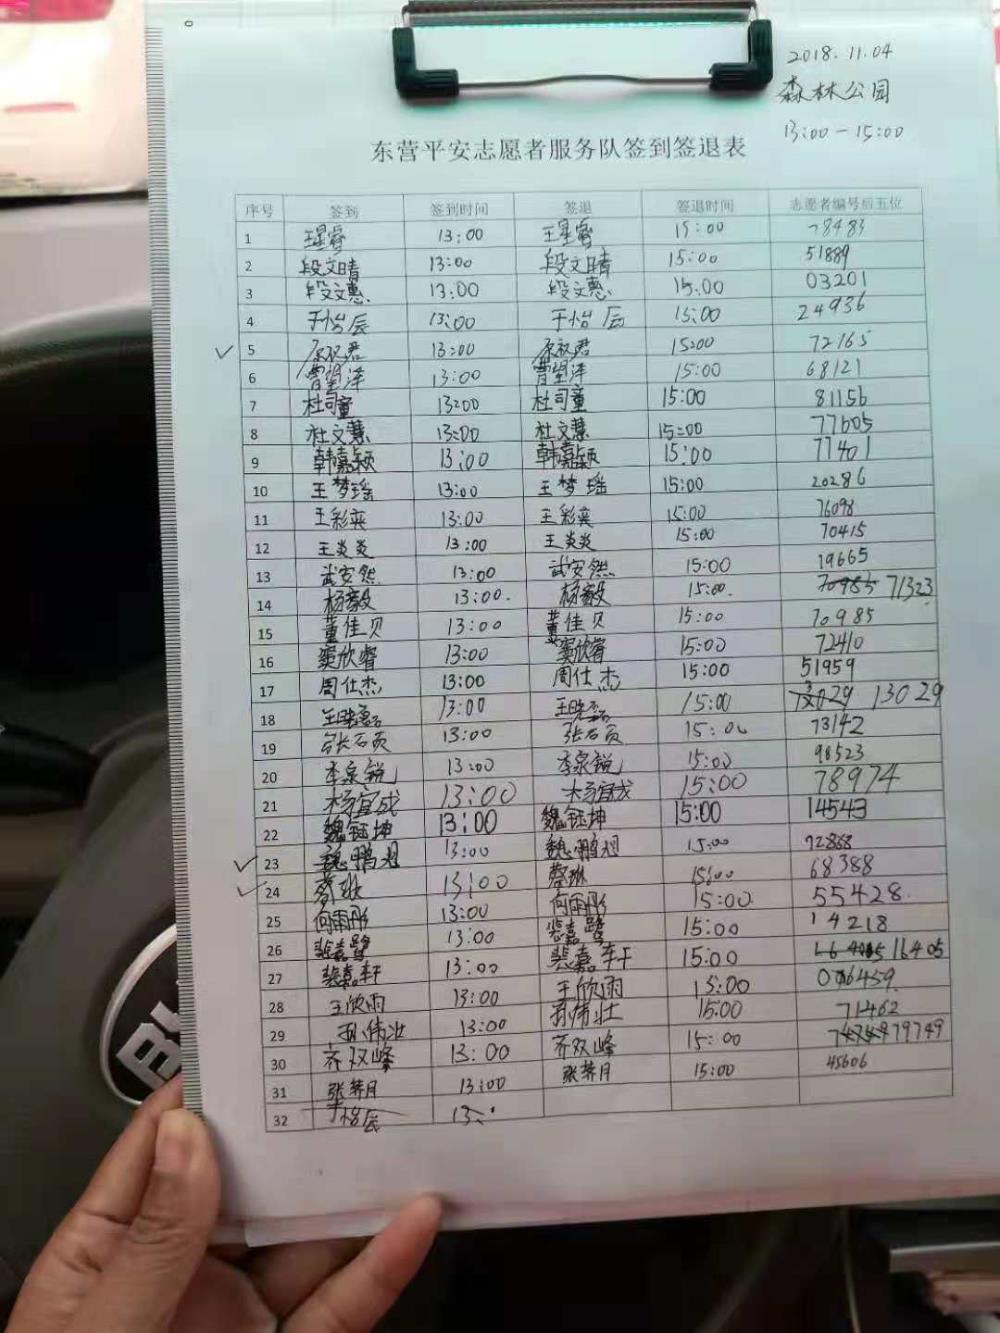 2018.11.04
森林公园
13:00-15:00
东营平安志愿者服务队签到签退表
序号 签到 签到时间 签退 签退时间 志愿者编号后五位
1 王星睿 13:00 王星睿 15:00 78483
2 段文晴 13:00 段文晴 15:00 51889
3 段文惠 13:00 段文惠 15:00 03201
4 于怡辰 13:00 于怡辰 15:00 24936
5 13:00 15:00 72165
6 曹望泽 13:00 曹望泽 15:00 68121
7 杜司童 13:00 杜司童 15:00 81156
8 杜文慧 13:00 杜文慧 15:00 77605
9 韩嘉颖 13:00 韩嘉颖 15:00 77401
10 王梦瑶 13:00 王梦瑶 15:00 20286
11 王彩奕 13:00 王彩奕 15:00 76098
12 王炎炎 13:00 王炎炎 15:00 70415
13 武安然 13:00 武安然 15:00 19665
14 杨毅 13:00. 杨毅 15:00. 70985 71323
15 董佳贝 13:00 董佳贝 15:00 70985
16 窦欣睿 13:00 窦欣睿 15:00 72410
17 周仕杰 13:00 周仕杰 15:00 51959
18 王晓磊 13:00 王晓磊 15:00 13029
19 张石页 13:00 张石页 15:00 73142
20 李泉锐 13:00 李泉锐 15:00 98523
21 杨宜成 13:00 杨宜成 15:00 78974
22 魏钰坤 13:00 魏钰坤 15:00 14543
23 魏鹏旭 13:00 魏鹏旭 15:00 92868
24 蔡琳 13:00 蔡琳 15:00 68388
25 何雨彤 13:00 何雨彤 15:00 55428
26 裴嘉璐 13:00 裴嘉璐 15:00 14218
27 裴嘉轩 13:00 裴嘉轩 15:00 16405
28 王欣雨 13:00 王欣雨 15:00 06459
29 孙伟壮 13:00 孙伟壮 15:00 71462
30 齐双峰 13:00 齐双峰 15:00 79749
31 张荞月 13:00 张荞月 15:00 45606
32 于怡辰 13: